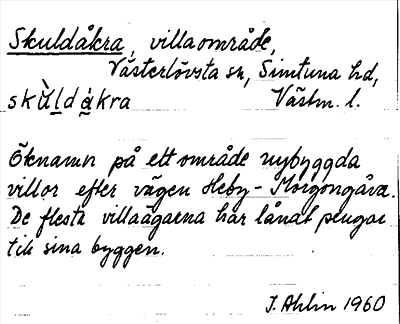 Skuldåkra, villaområde,
Västerlövsta sn, Simtuna hd,
skù̱ḻdạ̊̀kra Västm. l.
Öknamn på ett område nybyggda
villor efter vägen Heby-Morgongåva.
De flesta villaägarna har lånat pengar
till sina byggen.
I. Ahlin 1960